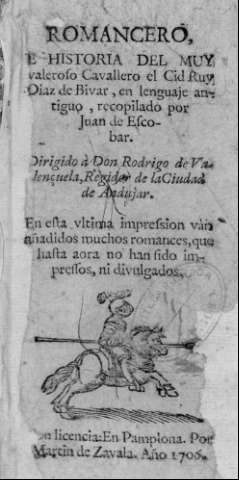 ROMANCERO,
E HISTORIA DEL MUY
valeroso Cavallero el Cid Ruy
Diaz de Bivar, en lenguaje an-
tiguo, recopilado por
Juan de Esco-
bar.
Dirigido à Don Rodrigo de Va-
lençuela, Regidor de la Ciudad
de Andujar.
En esta vltima impression van
añadidos muchos romances, que
hasta aora no han sido im-
pressos, ni divulgados.
Con licencia: En Pamplona. Por
Martin de Zavala. Año 1706.